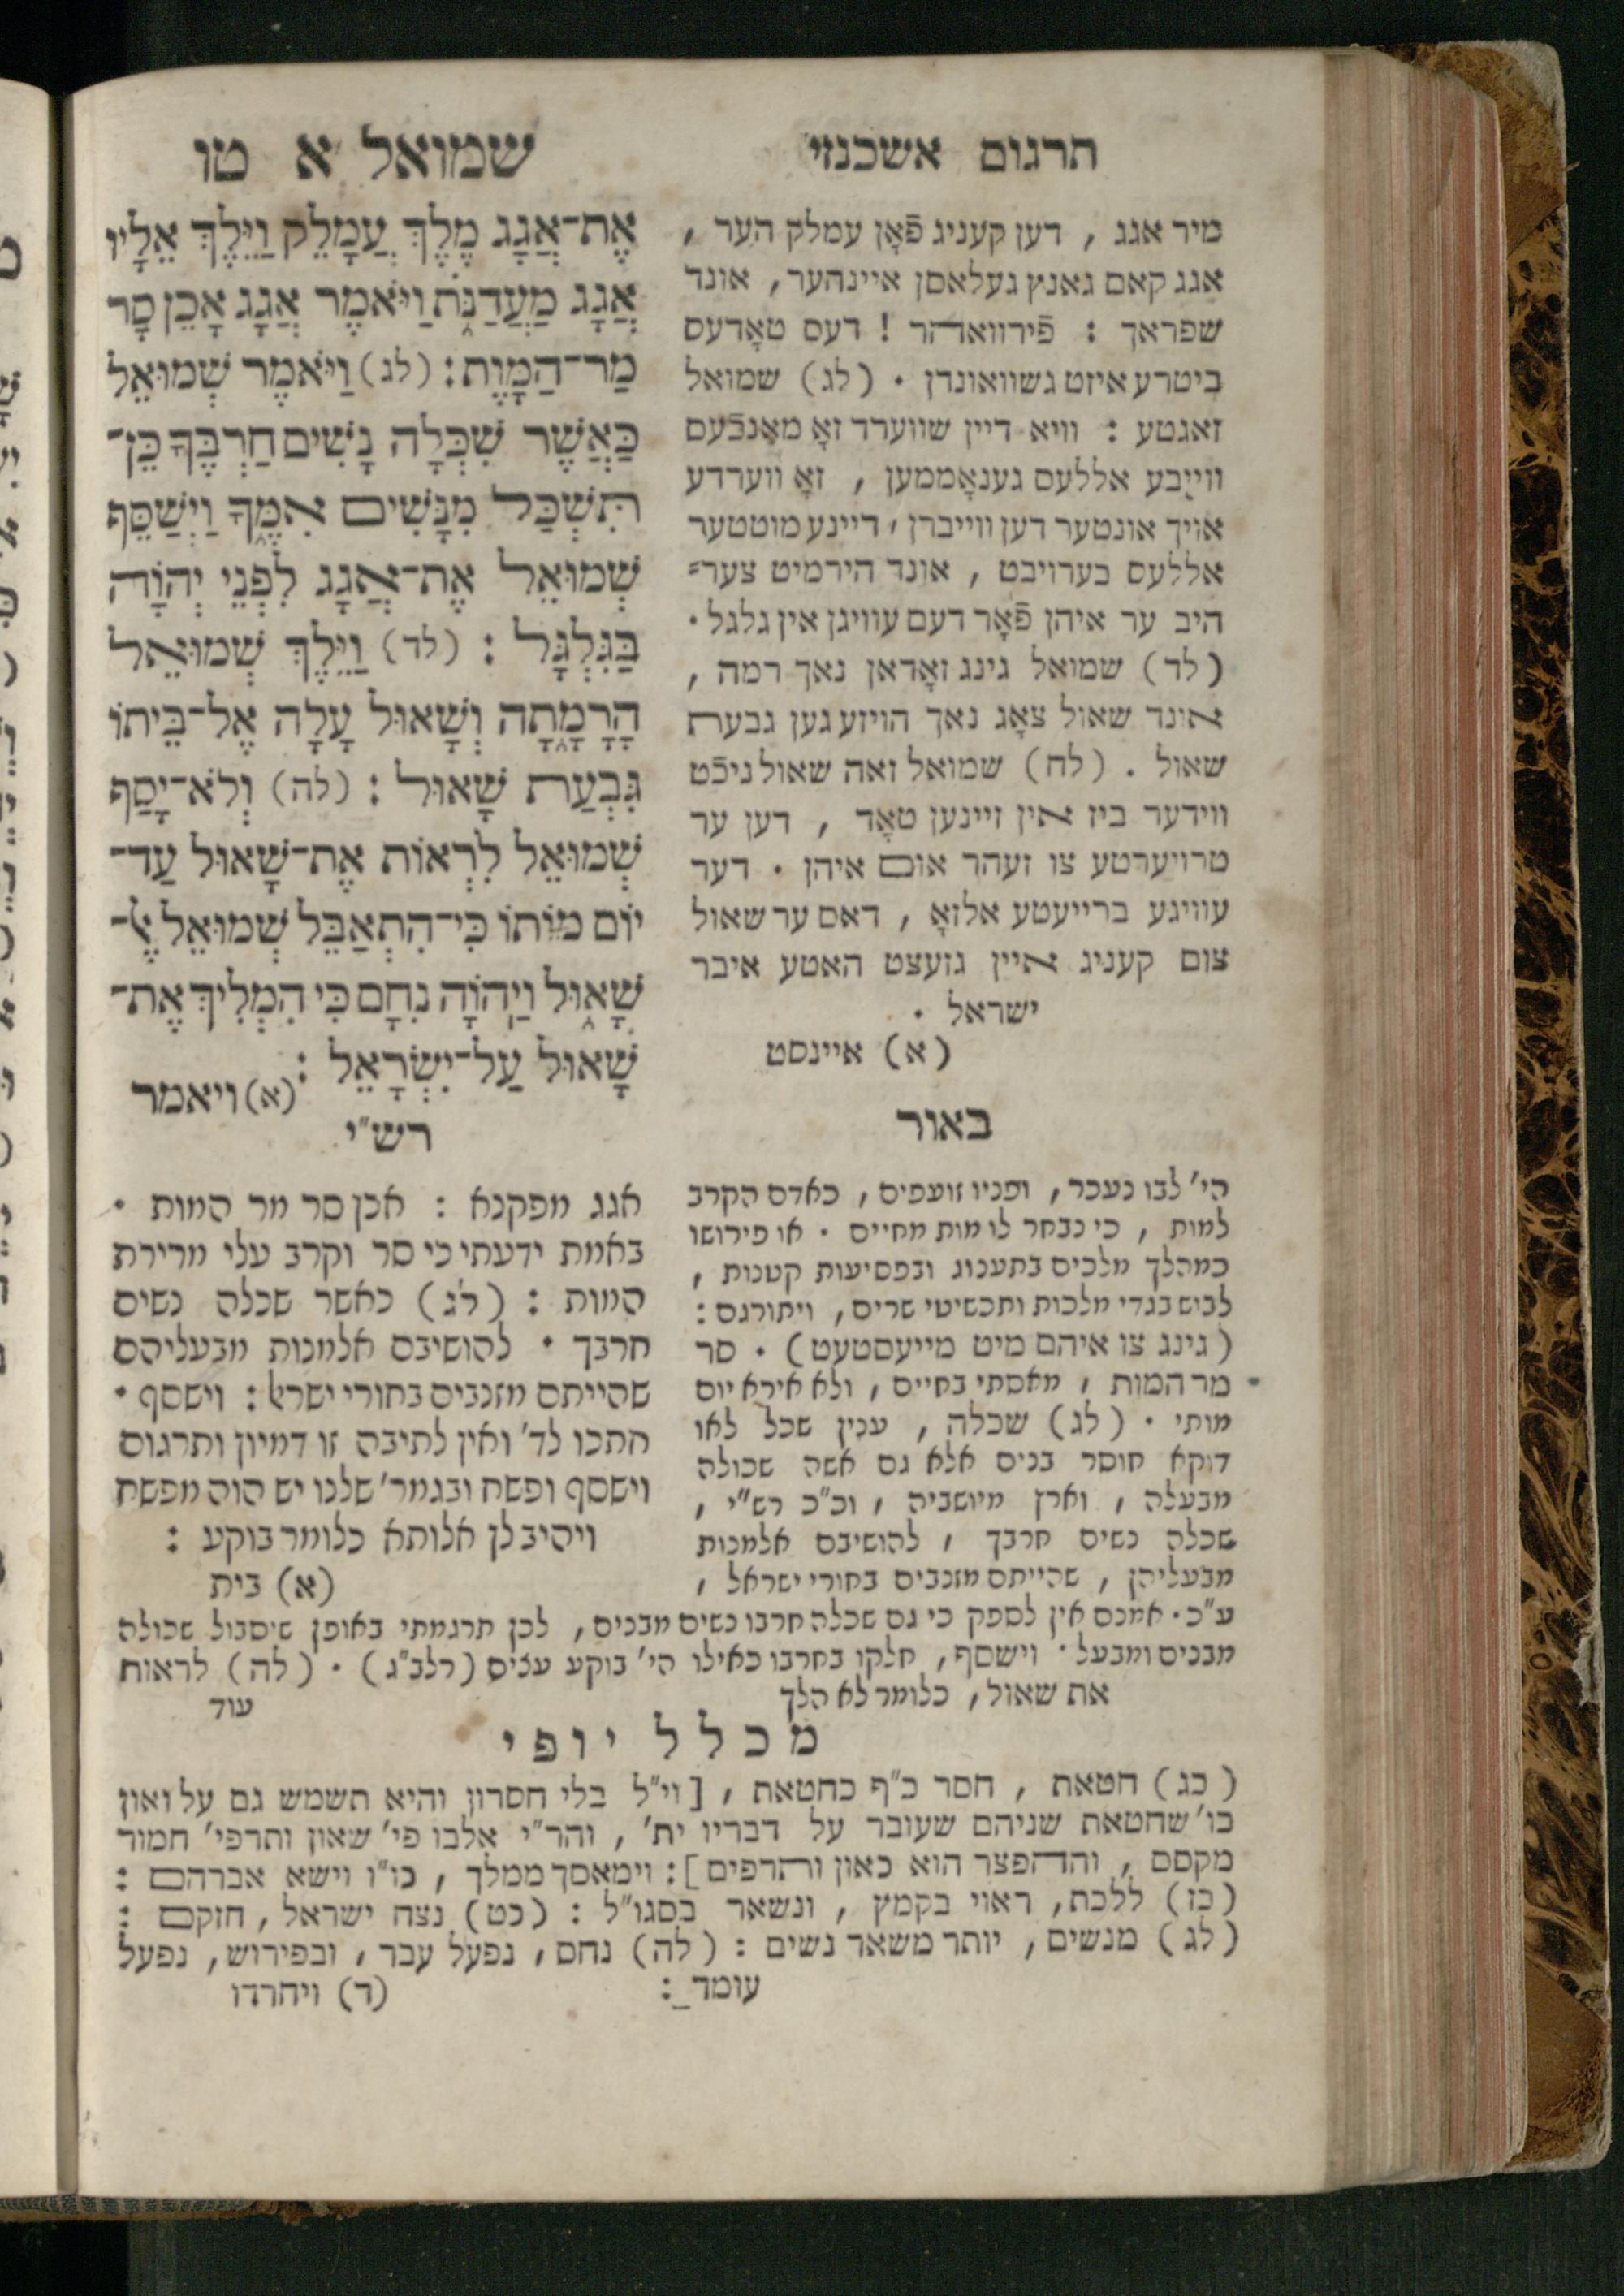 תרגום אשכנזי
מיר אגג , דען קעניג פֿאָן עמלק הער ,
אגג קאם גאנץ געלאסן איינהער , אונד
שפראך : פֿירוואהר ! דעס טאָדעס
ביטרע איזט גשוואונדן · (לג) שמואל
זאגטע : וויא דיין שווערד זאָ מאַנכֿעס
ווייבע אללעס גענאָממען , זאָ ווערדע
אויך אונטער דען ווייברן , דיינע מוטטער
אללעס בערויבט , אונד הירמיט צער=
היב ער איהן פֿאָר דעם עוויגן אין גלגל ·
(לד) שמואל גינג זאָדאן נאך רמה ,
אונד שאול צאָג נאך הויזע גען גבעת
שאול . (לח) שמואל זאה שאול ניכֿט
ווידער ביז אין זיינען טאָד , דען ער
טרויערטע צו זעהר אום איהן · דער
עוויגע ברייעטע אלזאָ , דאס ער שאול
צום קעניג איין גזעצט האטע איבר
ישראל ·
(א) איינסט
שמואל א טו
אֶת־אֲגָג מֶלֶךְ עֲמָלֵק וַיֵּלֶךְ אֵלָיו
אֲגָג מַעֲדַנֹּת וַיֹּאמֶר אֲגָג אָכֵן סָר
מַר־הַמָּוֶת : (לג) וַיֹּאמֶר שְׁמוּאֵל
כַּאֲשֶׁר שִׁכְּלָה נָשִׁים חַרְבֶּךָ כֵּן־
תִּשְׁכַּל מִנָּשִׁים אִמֶּךָ וַיְשַׁסֵּף
שְׁמוּאֵל אֶת־אֲגָג לִפְנֵי יְהוָֹה
בַּגִּלְגָּל : (לד) וַיֵּלֶךְ שְׁמוּאֵל
הָרָמָתָה וְשָׁאוּל עָלָה אֶל־בֵּיתוֹ
גִּבְעַת שָׁאוּל : (לה) וְלֹא־יָסַף
שְׁמוּאֵל לִרְאוֹת אֶת־שָׁאוּל עַד־
יוֹם מוֹתוֹ כִּי־הִתְאַבֵּל שְׁמוּאֵל אֶל־
שָׁאוּל וַיהוָֹה נִחָם כִּי הִמְלִיךְ אֶת־
שָׁאוּל עַל־יִשְׂרָאֵל :
(א) ויאמר
באור
הי' לבו נעכר , ופניו זועפים , כאדם הקרב
למות , כי נבחר לו מות מחיים · או פירושו
כמהלך מלכים בתענוג ובפסיעות קטנות ,
לבוש בגדי מלכות ותכשיטי שרים , ויתורגם :
(גינג צו איהם מיט מייעסטעט) · סר
מר המות , מאסתי בחיים , ולא אירא יום
מותי · (לג) שכלה , ענין שכל לאו
דוקא חוסר בנים אלא גם אשה שכולה
מבעלה , וארץ מיושביה , וכ"כ רש"י ,
שכלה נשים חרבך , להושיבם אלמנות
מבעליהן , שהייתם מזנבים בחורי ישראל ,
רש"י
אגג מפקנא : אכן סר מר המות ·
באמת ידעתי כי סר וקרב עלי מרירת
המות : (לג) כאשר שכלה נשים
חרבך · להושיבם אלמנות מבעליהם
שהייתם מזנבים בחורי ישראל : וישסף ·
חתכו לד' ואין לתיבה זו דמיון ותרגום
וישסף ופשח ובגמר' שלנו יש הוה מפשח
ויהיב לן אלותא כלומר בוקע :
(א) בית
ע"כ · אמנם אין לספק כי גם שכלה חרבו נשים מבנים , לכן תרגמתי באופן שיסבול שכולה
מבנים ומבעל · וישסף , חלקו בחרבו כאילו הי' בוקע עצים (רלב"ג) · (לה) לראות
את שאול , כלומר לא הלך
עוד
מכלל יופי
(כג) חטאת , חסר כ"ף כחטאת , [וי"ל בלי חסרון והיא תשמש גם על ואון
כו' שחטאת שניהם שעובר על דבריו ית' , והר"י אלבו פי' שאון ותרפי' חמור
מקסם , והדהפצר הוא כאון ותרפים] : וימאסך ממלך , כו"ו וישא אברהם :
(כז) ללכת , ראוי בקמץ , ונשאר בסגו"ל : (כט) נצח ישראל , חזקם :
(לג) מנשים , יותר משאר נשים : (לה) נחם , נפעל עבר , ובפירוש , נפעל
עומד :
(ד) ויחרדו